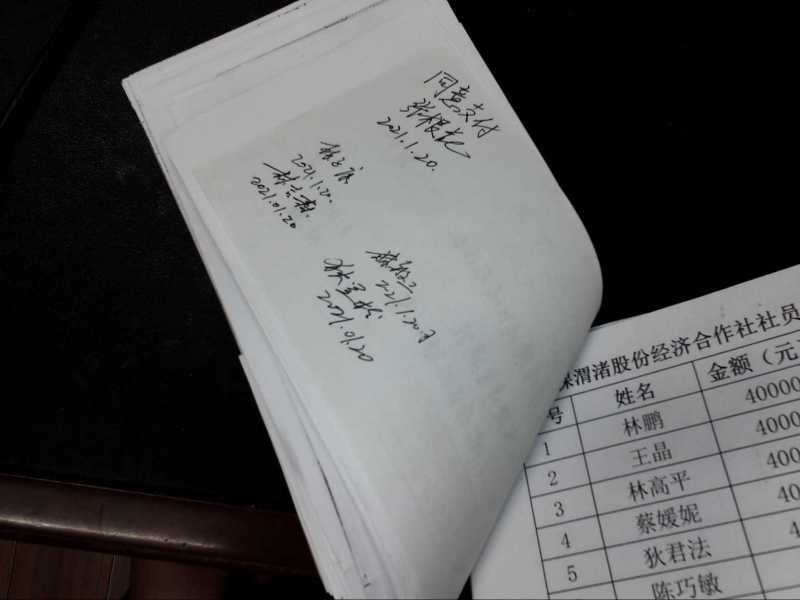 同意支付
2021.1.20.
2021.1.20.
2021.01.20
2021.1.20日
2021.01.20
渭渚股份经济合作社社员
号 姓名 金额（元
1 林鹏 40000
2 王晶 4000
3 林高平 400
4 蔡媛妮 40
5 狄君法 4
陈巧敏